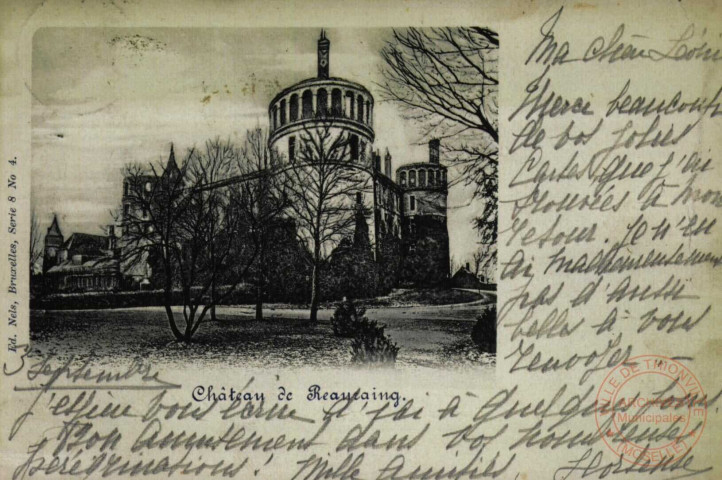 Ma chère Léon
Merci beaucoup
de vos jolies
cartes que j'ai
trouvées à mon
retour. Je n'en
ai malheureusement
pas d'aussi
belles à vous
renvoyer —
3 Septembre
Château de Beauraing.
J'espère vous écrire d'ici à quelques jours
Bon amusement dans vos nombreuses
pérégrinations! Mille amitiés, Hortense
Ed. Nels, Bruxelles, Serie 8 No 4.
VILLE DE THIONVILLE
ARCHIVES
Municipales
(MOSELLE)